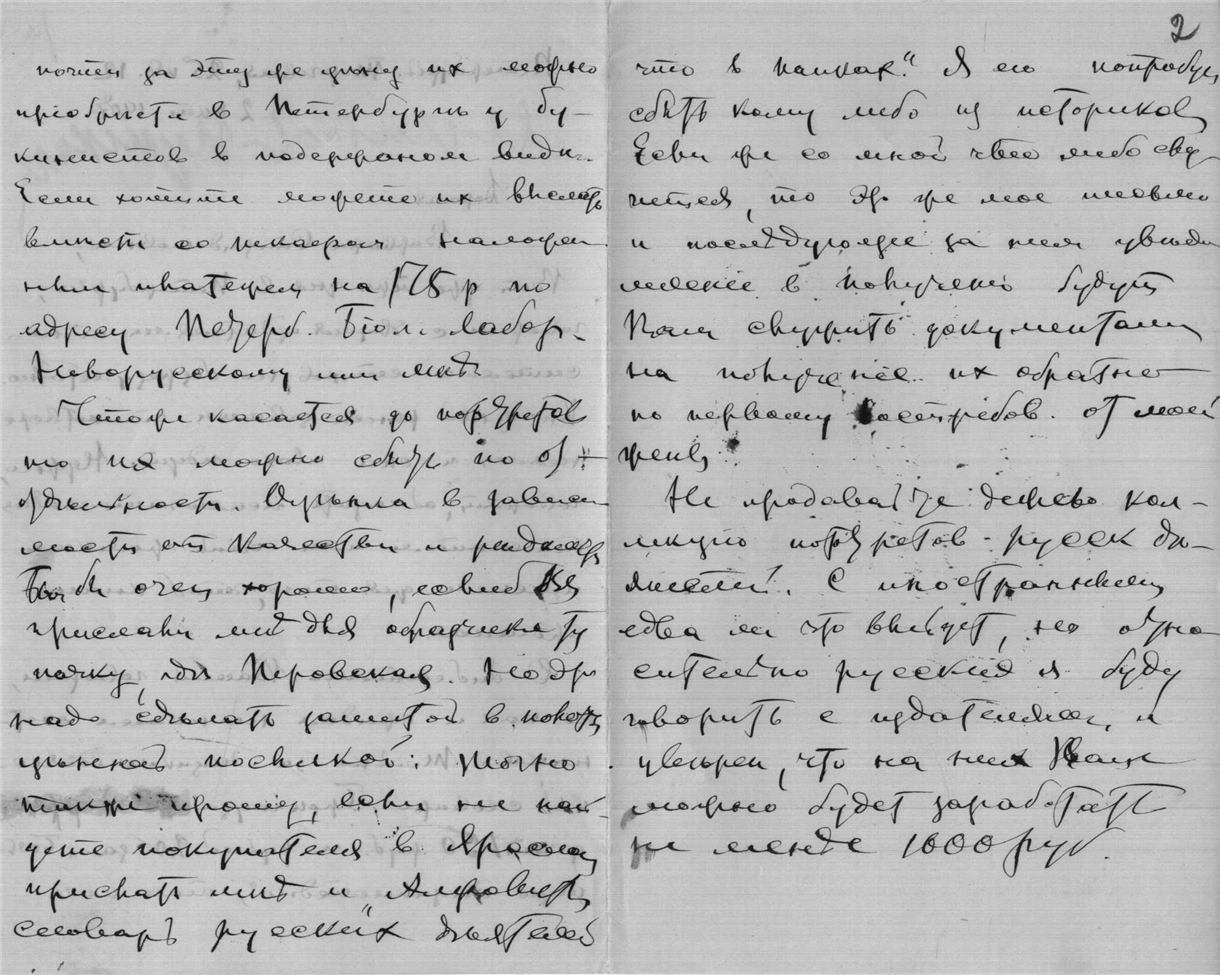 почти за эту же цѣну их можно
пріобрѣсти в Петербургѣ у бу-
кинистов в подержаном видѣ.
Если хотите можете их выслать
вмѣстѣ со шкафом наложен
ным платежем на 175 р по
адресу Петерб. Біол. Лабор.
Новорусскому или мнѣ.
Чтоже касается до портретов
то их можно сбыть по от-
дѣльности. Оцѣнка в зависи
мости от качества и рѣдкости
Было бы очень хорошо, если б Вы
прислали мнѣ для образчика ту
пачку, гдѣ Перовская. Но это
надо сдѣлать зашитой в полот
цѣнной посылкой: Точно
также прошу, если не най-
дете покупателя в Ярославлѣ
прислать мнѣ и Алфовитн
словарь русских „дѣятелей
2
что в папках." Я его попробую
сбыть кому либо из историков
Если же со мной что либо слу
чится, то это же мое письмо
и послѣдующее за ним увѣдо
мленіе в полученіи будут
Вам служить документами
на полученіе их обратно
по первому востребов. от моей
жены
Не продавайте дешево кол-
лекцію портретов - русск дѣ-
ятелей. С иностранными
едва ли что выйдет, но отно
сительно русских я буду
говорить с издателями, и
увѣрен, что на них Вам
можно будет заработать
не менѣе 1000 руб.